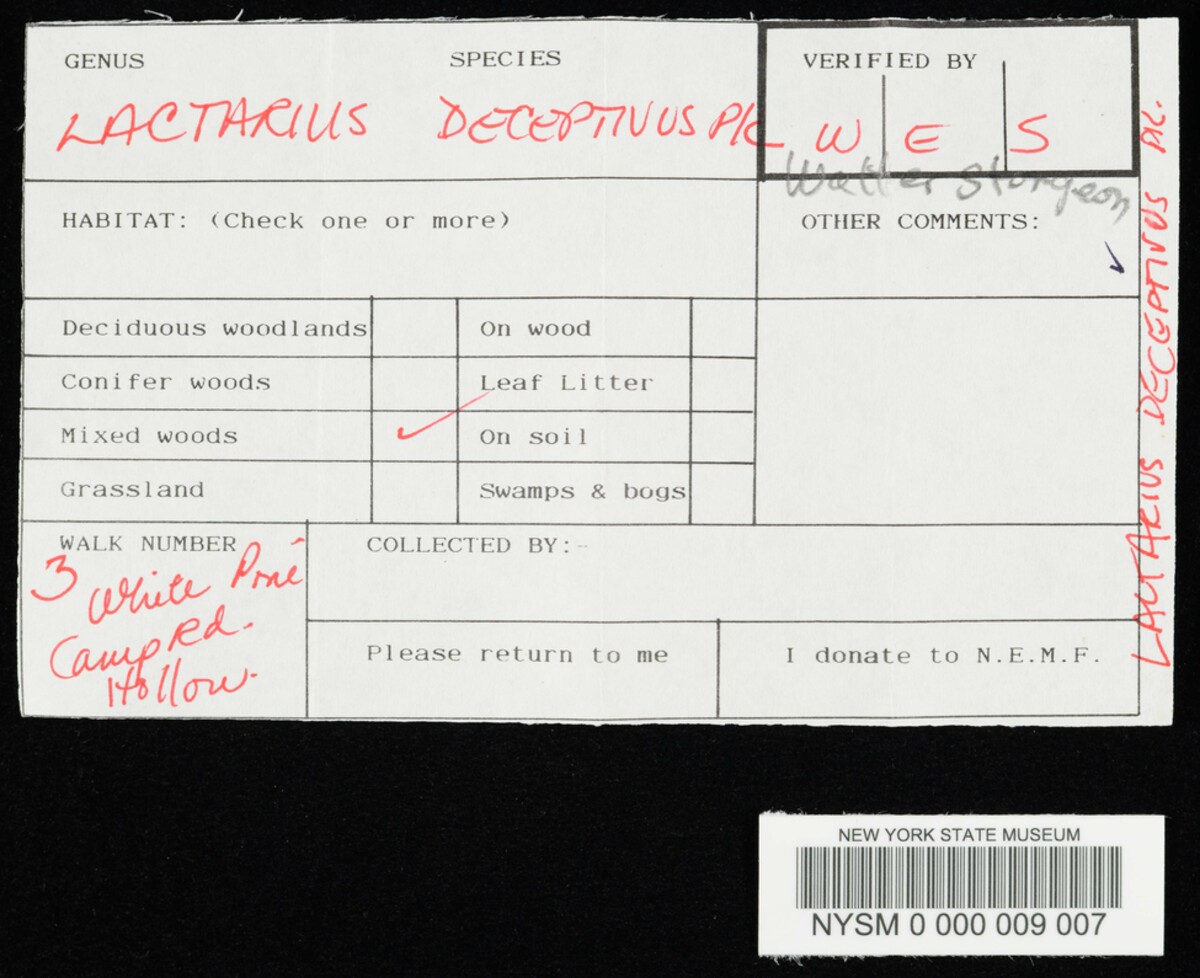 GENUS SPECIES VERIFIED BY
LACTARIUS DECEPTIVUS PK W E S
Walter Sturgeon
HABITAT: (Check one or more)
OTHER COMMENTS:
✓
Deciduous woodlands On wood
Conifer woods Leaf Litter
Mixed woods ✓ On soil
Grassland Swamps & bogs
WALK NUMBER
3 White Pine
Camp Rd.
Hollow.
COLLECTED BY:
Please return to me
I donate to N.E.M.F.
LACTARIUS DECEPTIVUS PK.
NEW YORK STATE MUSEUM
NYSM 0 000 009 007